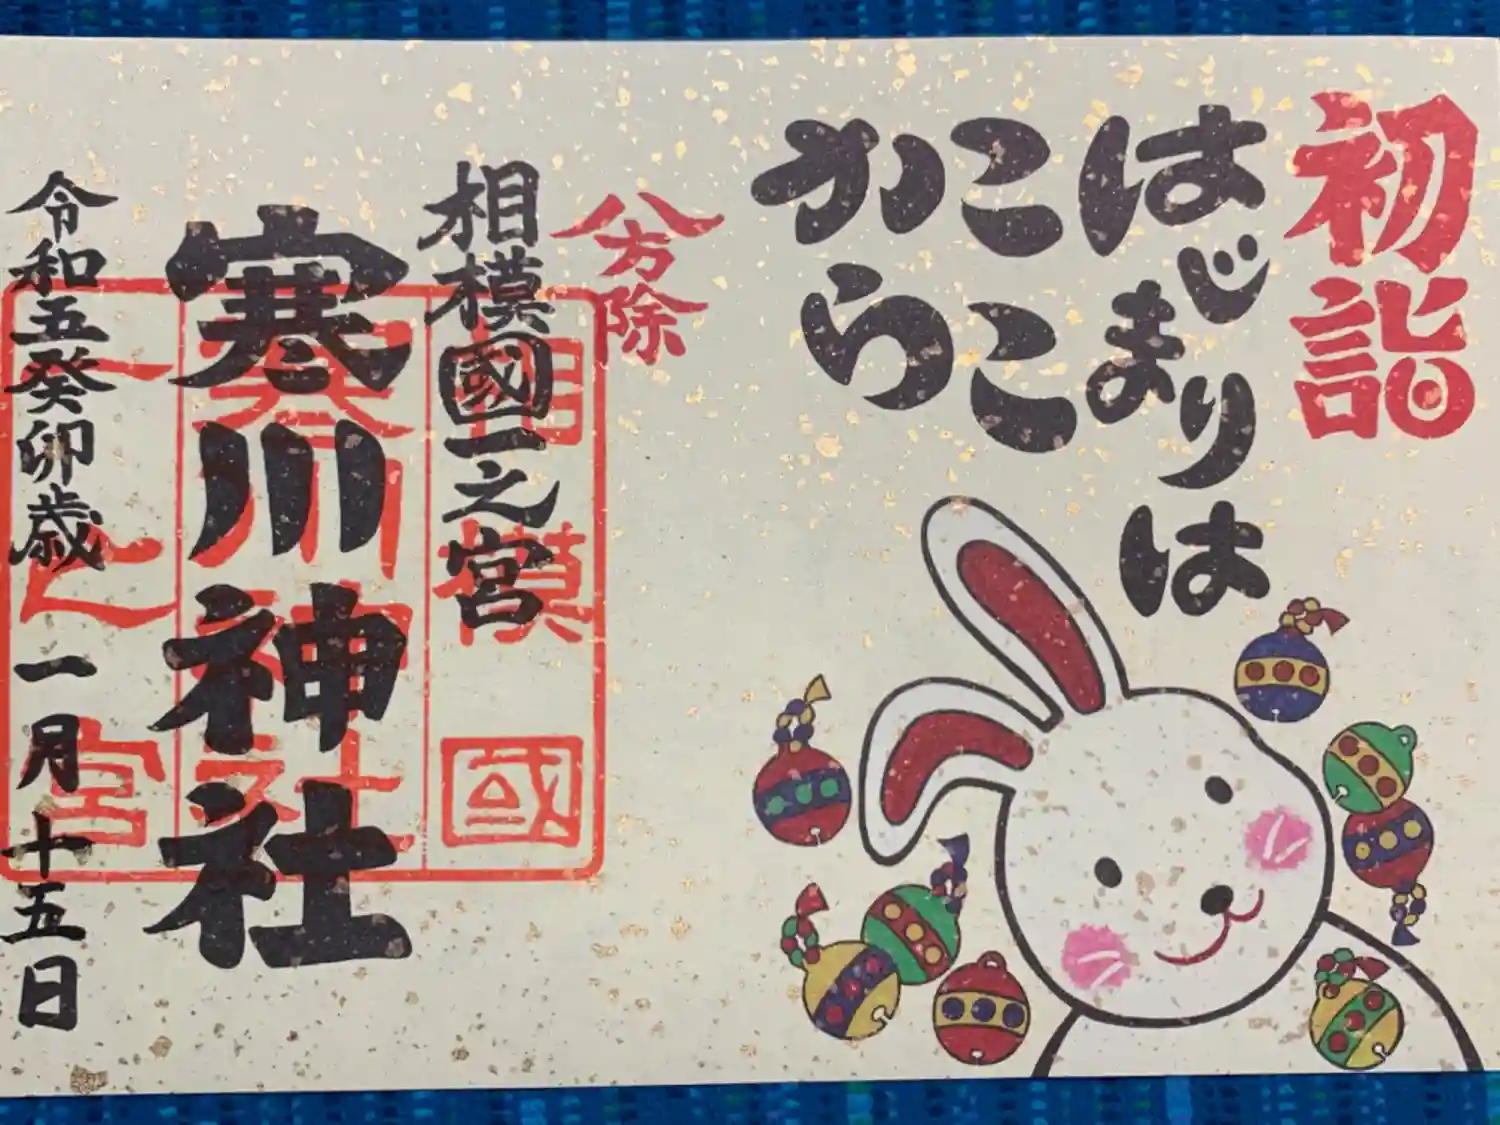 初詣
はじまりは
ここ
から
八方除
相模國一之宮
寒川神社
令和五癸卯歳 一月 十五日
相模國
寒川神社
一之宮